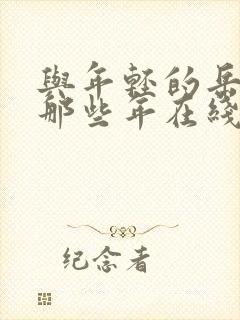 與年輕的岳
那些年在綫
纪念者